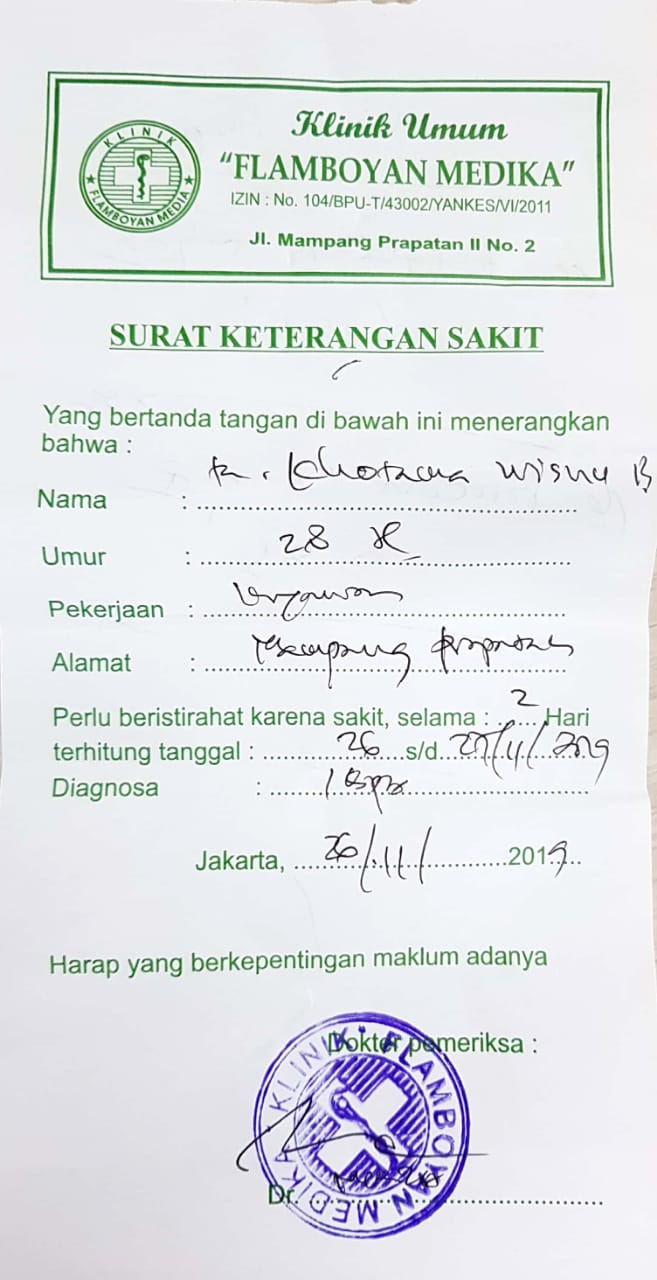 KLINIK
FLAMBOYAN MEDIA
Klinik Umum
"FLAMBOYAN MEDIKA"
IZIN : No. 104/BPU-T/43002/YANKES/VI/2011
Jl. Mampang Prapatan II No. 2
SURAT KETERANGAN SAKIT
Yang bertanda tangan di bawah ini menerangkan
bahwa :
Nama : Wisnu B
Umur : 28
Pekerjaan :
Alamat : Mampang Prapatan
Perlu beristirahat karena sakit, selama : 2 Hari
terhitung tanggal : 26 s/d 27/11/2019
Diagnosa :
Jakarta, 26/11/ 2019
Harap yang berkepentingan maklum adanya
Dokter pemeriksa :
KLINIK FLAMBOYAN MEDIKA
Dr.